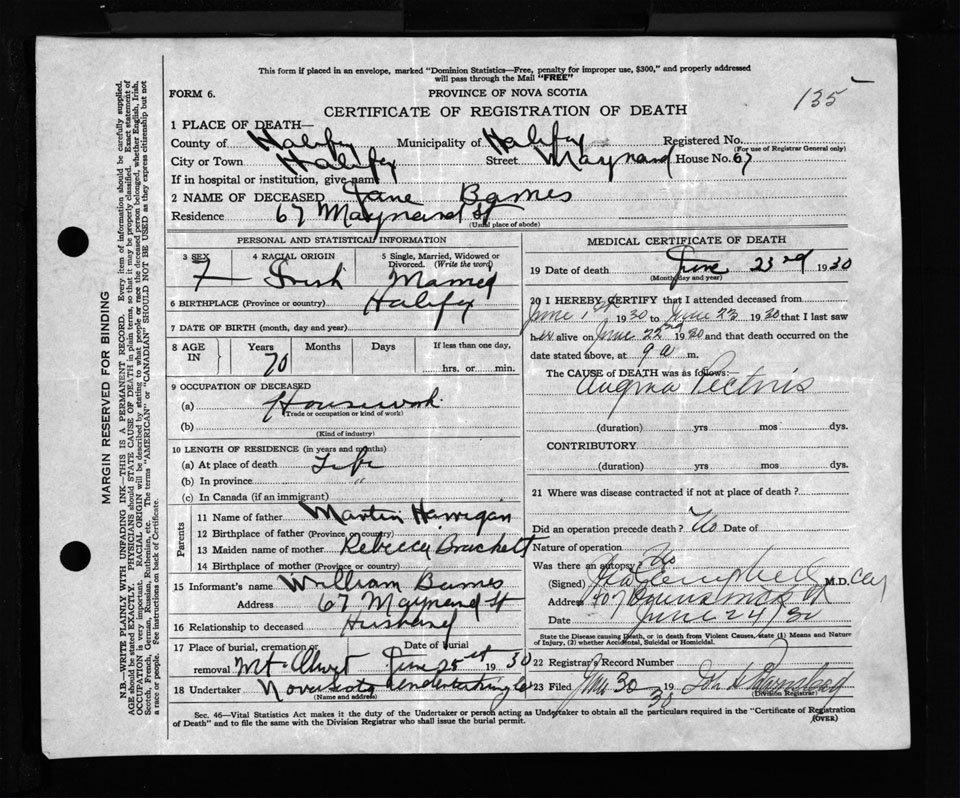 This form if placed in an envelope, marked "Dominion Statistics—Free, penalty for improper use, $300," and properly addressed
will pass through the Mail "FREE"
FORM 6.
PROVINCE OF NOVA SCOTIA
135
CERTIFICATE OF REGISTRATION OF DEATH
1 PLACE OF DEATH—
County of Halifax Municipality of Halifax Registered No.
(For use of Registrar General only)
City or Town Halifax Street Maynard House No. 67
If in hospital or institution, give name
2 NAME OF DECEASED Jane Barnes
Residence 67 Maynard St
(Usual place of abode)
PERSONAL AND STATISTICAL INFORMATION
3 SEX 4 RACIAL ORIGIN 5 Single, Married, Widowed or Divorced. (Write the word)
F Irish Married
6 BIRTHPLACE (Province or country) Halifax
7 DATE OF BIRTH (month, day and year)
8 AGE IN Years Months Days If less than one day,
70 hrs. or min.
9 OCCUPATION OF DECEASED
(a) Housework
(Trade or occupation or kind of work)
(b)
(Kind of industry)
10 LENGTH OF RESIDENCE (in years and months)
(a) At place of death Life
(b) In province "
(c) In Canada (if an immigrant)
Parents
11 Name of father Martin Harrigan
12 Birthplace of father (Province or country)
13 Maiden name of mother Rebecca Brackett
14 Birthplace of mother (Province or country)
15 Informant's name William Barnes
Address 67 Maynard St
16 Relationship to deceased Husband
17 Place of burial, cremation or removal Date of Burial
Mt Olivet June 25th 1930
18 Undertaker Nova Scotia Undertaking Co
(Name and address)
MEDICAL CERTIFICATE OF DEATH
19 Date of death June 23rd 1930
(Month, day and year)
20 I HEREBY CERTIFY that I attended deceased from
June 1st 1930 to June 23 1930 that I last saw
her alive on June 22nd 1930 and that death occurred on the
date stated above, at 9 a m.
The CAUSE of DEATH was as follows:—
Angina Pectoris
(duration) yrs mos dys.
CONTRIBUTORY
(duration) yrs mos dys.
21 Where was disease contracted if not at place of death?
Did an operation precede death? No Date of
Nature of operation
Was there an autopsy? No
(Signed) M.D.
Address 407 St
Date June 24/30
State the Disease causing Death, or in death from Violent Causes, state (1) Means and Nature
of Injury, (2) whether Accidental, Suicidal or Homicidal.
22 Registrar's Record Number
23 Filed June 30 1930 John
(Division Registrar)
Sec. 46—Vital Statistics Act makes it the duty of the Undertaker or person acting as Undertaker to obtain all the particulars required in the "Certificate of Registration
of Death" and to file the same with the Division Registrar who shall issue the burial permit.
(OVER)
MARGIN RESERVED FOR BINDING
N.B.—WRITE PLAINLY WITH UNFADING INK—THIS IS A PERMANENT RECORD. Every item of information should be carefully supplied.
AGE should be stated EXACTLY. PHYSICIANS should STATE CAUSE OF DEATH in plain terms, so that it may be properly classified. Exact statement of
OCCUPATION is very important. RACIAL ORIGIN will be described by stating to what people or race the deceased person belonged, whether English, Irish,
Scotch, French, German, Russian, Ruthenian, etc. The terms "AMERICAN" or "CANADIAN" SHOULD NOT BE USED as they express citizenship but not
a race or people. See instructions on back of Certificate.